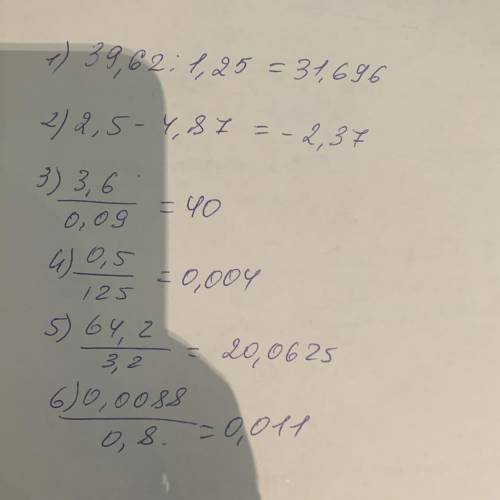 1) 39,62 : 1,25 = 31,696
2) 2,5 - 4,87 = - 2,37
3) 3,6 / 0,09 = 40
4) 0,5 / 125 = 0,004
5) 64,2 / 3,2 = 20,0625
6) 0,0088 / 0,8. = 0,011